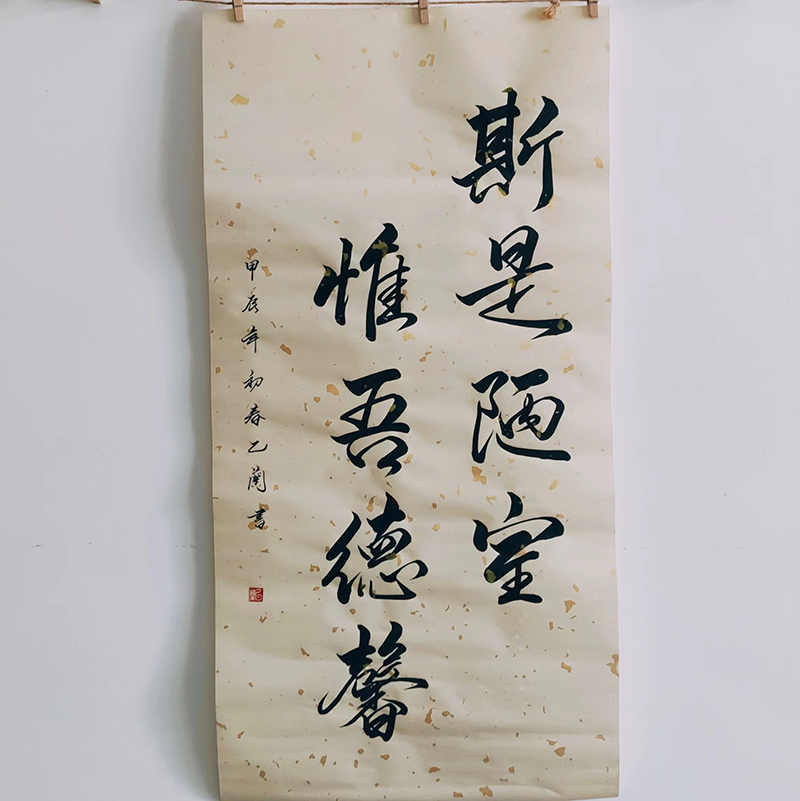 斯是陋室
惟吾德馨
甲辰年初春乙蘭書